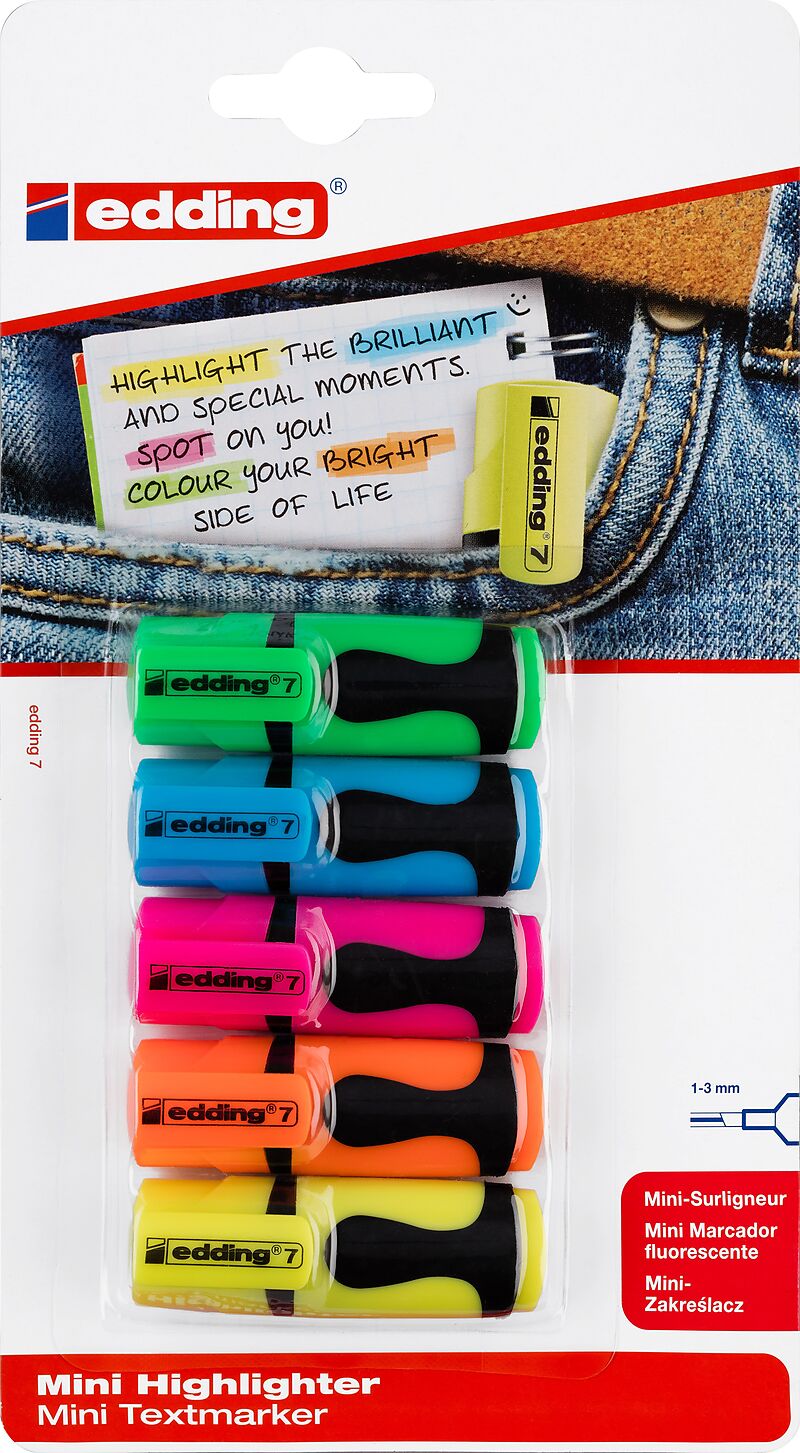 edding®
HIGHLIGHT THE BRILLIANT
AND SPECIAL MOMENTS.
SPOT ON YOU!
COLOUR YOUR BRIGHT
SIDE OF LIFE
edding 7
edding® 7
edding 7
edding® 7
edding® 7
edding® 7
edding® 7
1-3 mm
Mini-Surligneur
Mini Marcador
fluorescente
Mini-
Zakreślacz
Mini Highlighter
Mini Textmarker